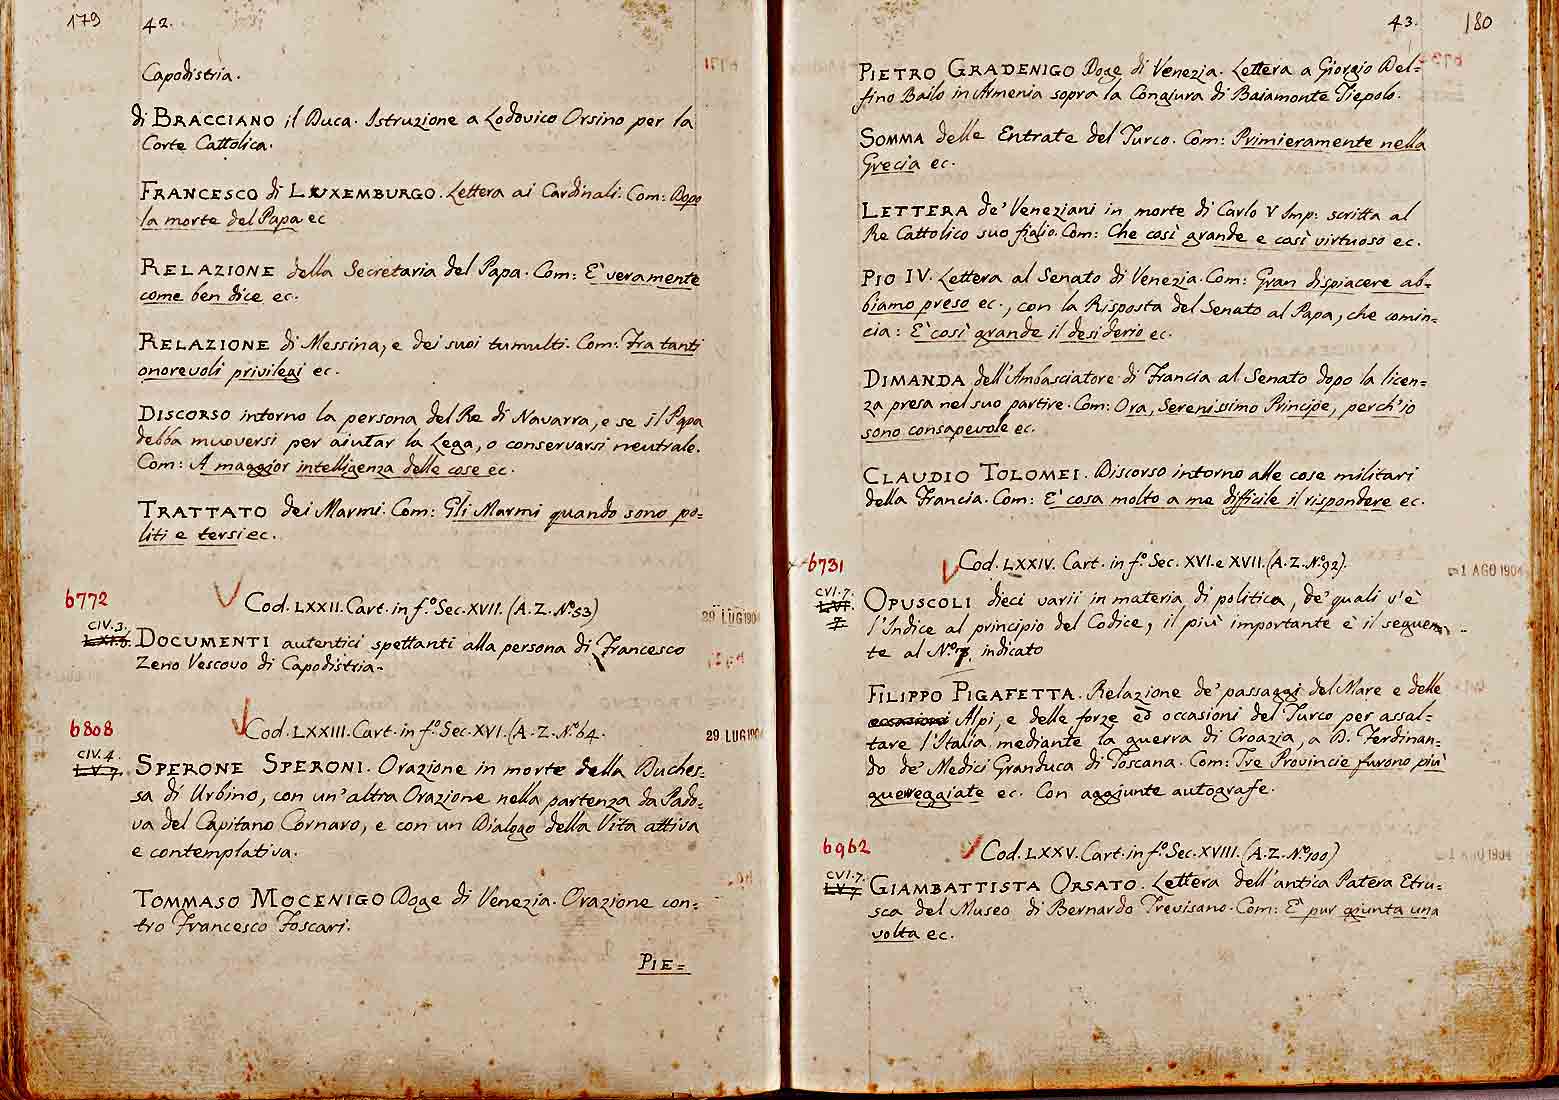 179
42.
Capodistria.
di BRACCIANO il Duca. Istruzione a Lodovico Orsino per la
Corte Cattolica.
FRANCESCO di LUXEMBURGO. Lettera ai Cardinali. Com: Dopo
la morte del Papa ec
RELAZIONE della Secretaria del Papa. Com: E' veramente
come ben dice ec.
RELAZIONE di Messina, e dei suoi tumulti. Com: Fra tanti
onorevoli privilegi ec.
DISCORSO intorno la persona del Re di Navarra, e se il Papa
debba muoversi per aiutar la Lega, o conservarsi neutrale.
Com: A maggior intelligenza delle cose ec.
TRATTATO dei Marmi. Com: Gli Marmi quando sono po=
liti e tersi ec.
6772
Cod. LXXII. Cart. in f.º Sec. XVII. (A. Z. Nº 53)
29 LUG 190
CIV. 3.
DOCUMENTI autentici spettanti alla persona di Francesco
Zeno Vescovo di Capodistria.
6808
Cod. LXXIII. Cart. in f.º Sec. XVI. (A. Z. Nº 64.
29 LUG 190
CIV. 4.
SPERONE SPERONI. Orazione in morte della Duches=
sa di Urbino, con un'altra Orazione nella partenza da Pado=
va del Capitano Cornaro, e con un Dialogo della Vita attiva
e contemplativa.
TOMMASO MOCENIGO Doge di Venezia. Orazione con=
tro Francesco Foscari.
PIE=
43.
180
PIETRO GRADENIGO Doge di Venezia. Lettera a Giorgio Del=
fino Bailo in Armenia sopra la Congiura di Baiamonte Tiepolo.
SOMMA delle Entrate del Turco. Com: Primieramente nella
Grecia ec.
LETTERA de' Veneziani in morte di Carlo V Imp: scritta al
Re Cattolico suo figlio. Com: Che così grande e così virtuoso ec.
PIO IV. Lettera al Senato di Venezia. Com: Gran dispiacere ab=
biamo preso ec., con la Risposta del Senato al Papa, che comin=
cia: E' così grande il desiderio ec.
DIMANDA dell'Ambasciatore di Francia al Senato dopo la licen=
za presa nel suo partire. Com: Ora, Serenissimo Principe, perch'io
sono consapevole ec.
CLAUDIO TOLOMEI. Discorso intorno alle cose militari
della Francia. Com: E' cosa molto a me difficile il rispondere ec.
6731
Cod. LXXIV. Cart. in f.º Sec. XVI. e XVII. (A. Z. Nº 92).
1 AGO 1904
CVI. 7.
OPUSCOLI dieci varii in materia di politica, de' quali v'è
l'Indice al principio del Codice, il più importante è il seguen=
te al Nº 7. indicato
FILIPPO PIGAFETTA. Relazione de' passaggi del Mare e delle
occasioni Alpi, e delle forze ed occasioni del Turco per assal=
tare l'Italia mediante la guerra di Croazia, a D. Ferdinan=
do de' Medici Granduca di Toscana. Com: Tre Provincie furono più
guerreggiate ec. Con aggiunte autografe.
6962
Cod. LXXV. Cart. in f.º Sec. XVIII. (A. Z. Nº 100)
1904
CVI. 7.
GIAMBATTISTA ORSATO. Lettera dell'antica Patera Etru=
sca del Museo di Bernardo Trevisano. Com: E' pur giunta una
volta ec.